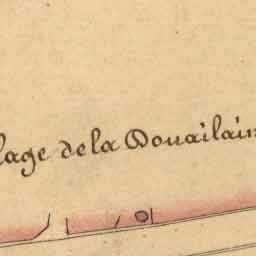 lage de la Douailain